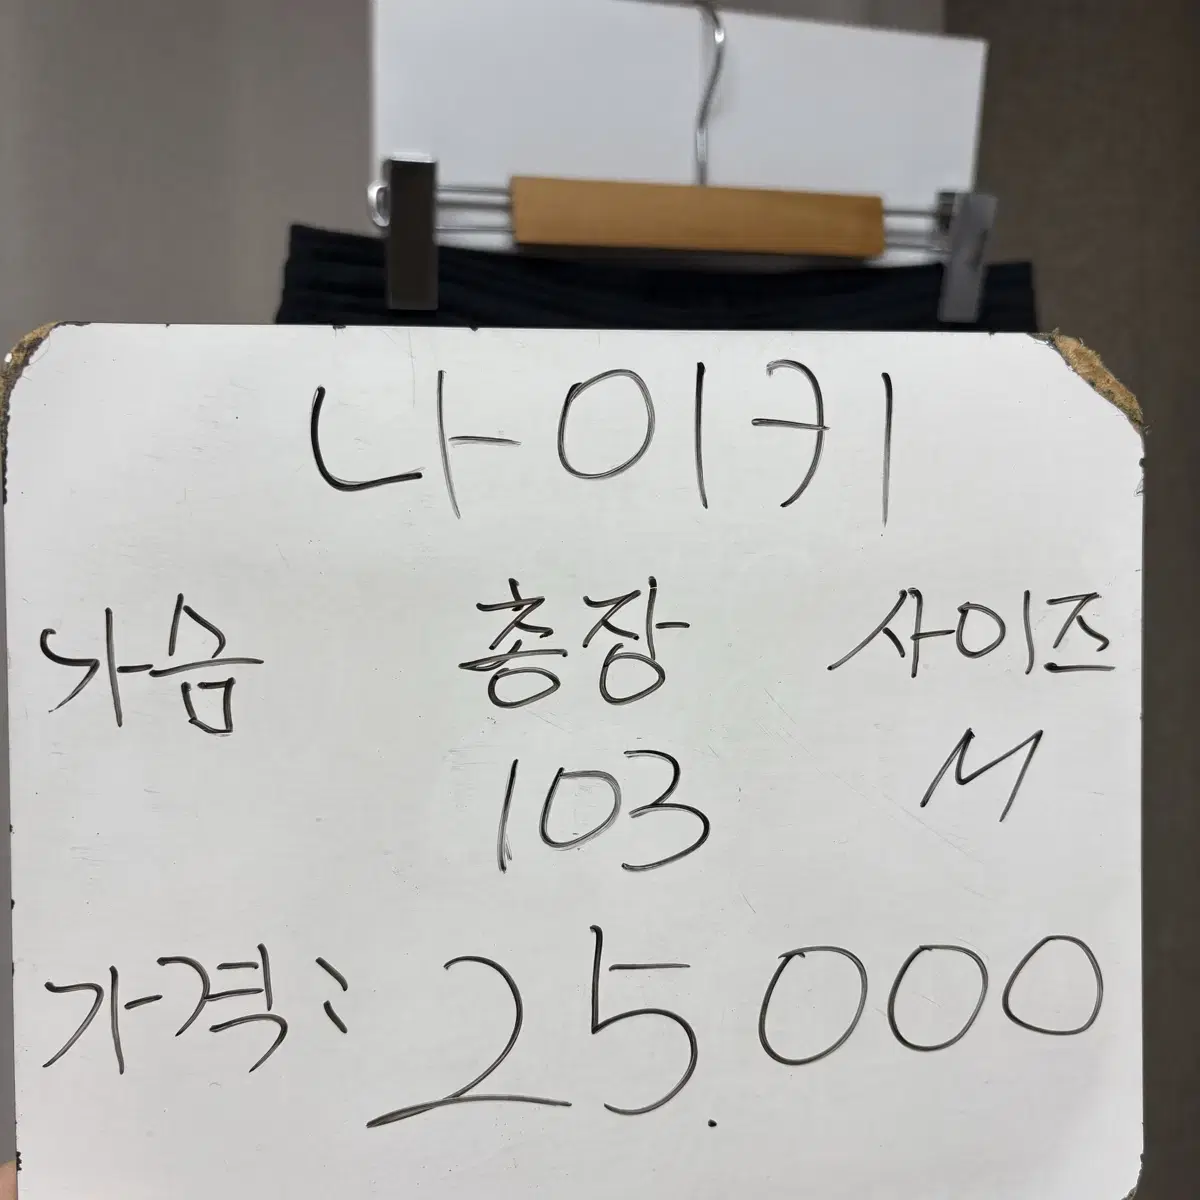 나이키
가슴 총장 사이즈
103 M
가격: 25.000